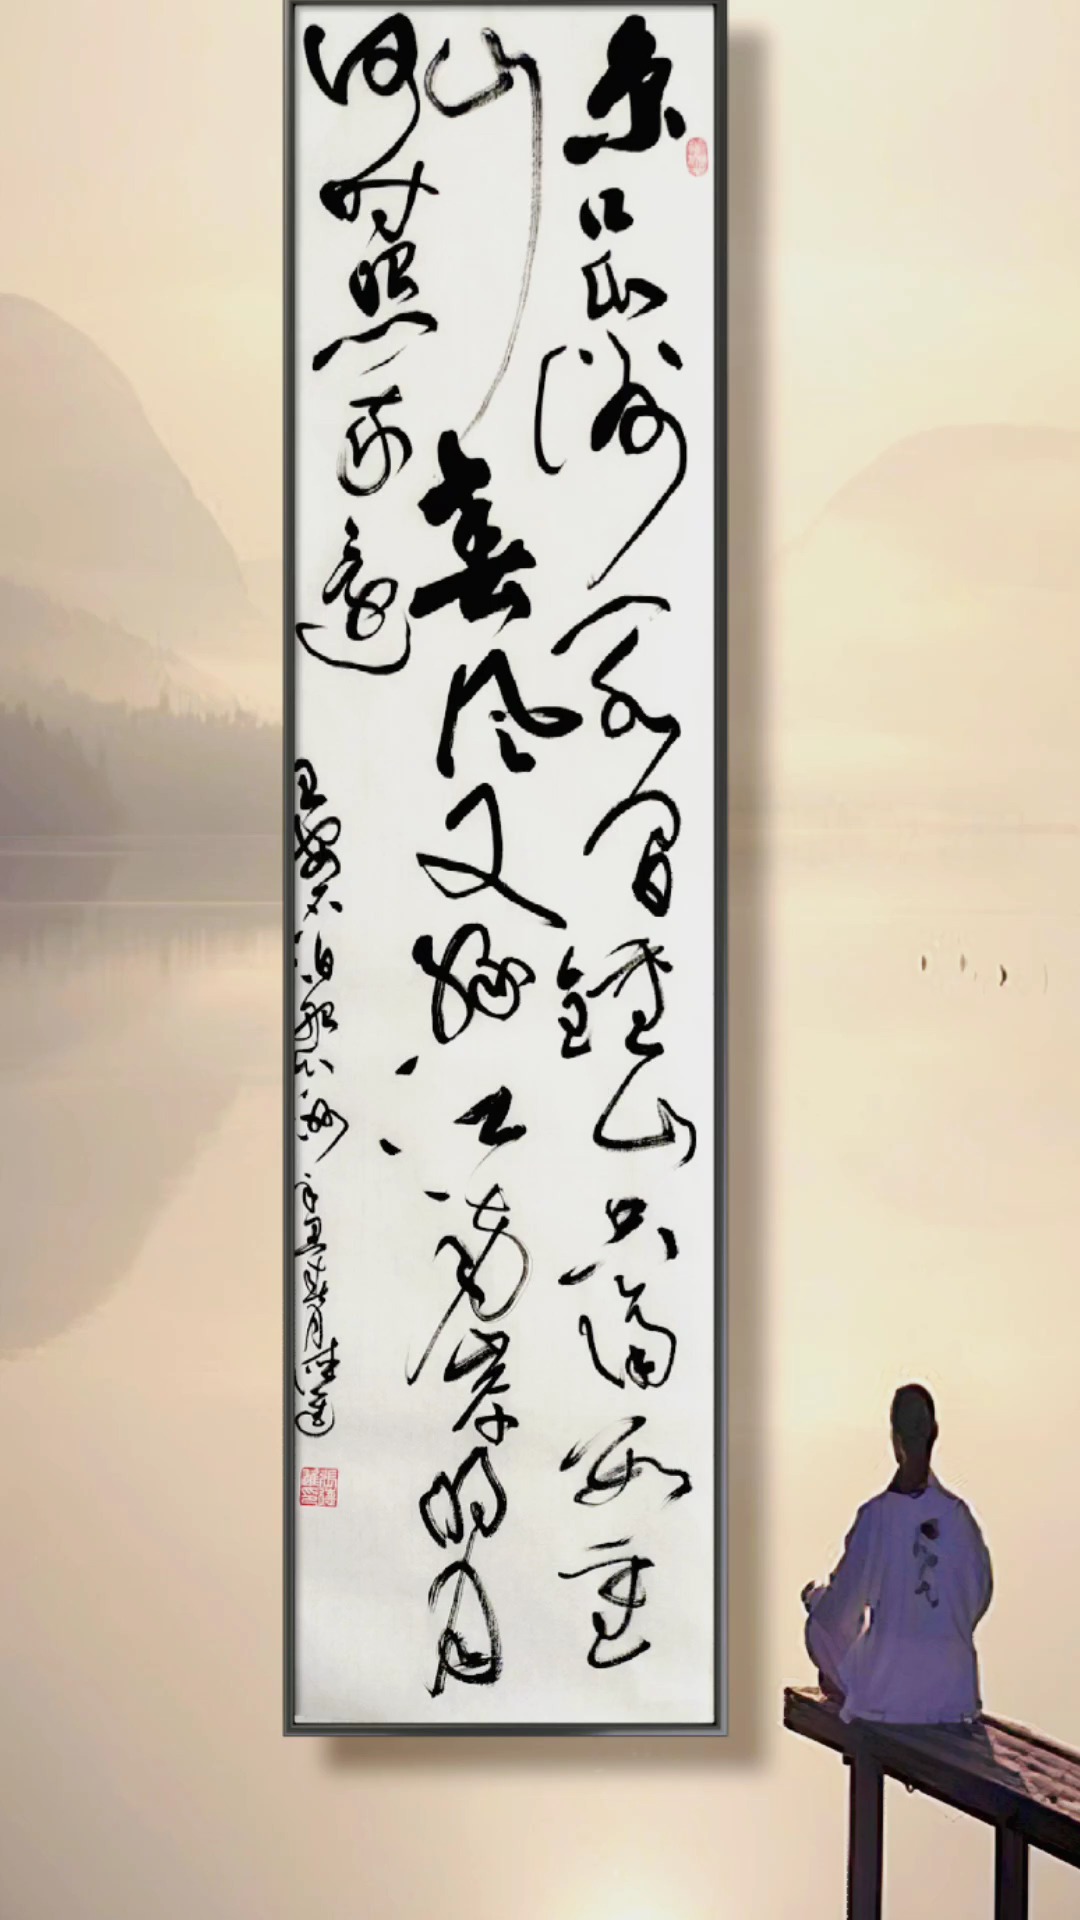 京口瓜洲一水间鍾山只隔数重
山春风又绿江南岸明月
何时照我還
王安石泊船瓜洲辛丑